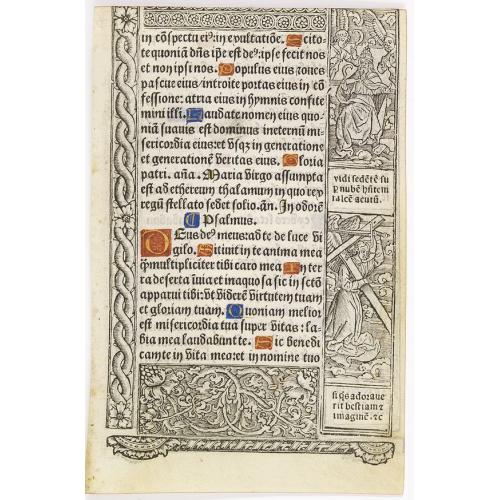 in cōspectu ei⁹: in exultatiōe. Scito
te quoniā dñs ip̄e est de⁹: ipse fecit nos
et non ipsi nos. Populus eius ⁊ oues
pascue eius / introite portas eius in cō
fessione: atria eius in hymnis confite
mini illi. Laudate nomen eius quo
niā suauis est dominus in eternū mi-
sericordia eius: et vsqꝫ in generatione
et generationē veritas eius. Gloria
patri. añ. Maria virgo assumpta
est ad ethereum thalamum in quo rex
regū stellato sedet solio. an̄. In odorē
Psalmus.
Deus de⁹ meus: ad te de luce vi
gilo. Sitiuit in te anima mea
q̄multipliciter tibi caro mea In ter
ra deserta īuia et inaquosa sic in sctō
apparui tibi: vt viderē virtutem tuam
et gloriam tuam. Quoniam melior
est misericordia tua super vitas: la-
bia mea laudabunt te. Sic benedi
cam te in vita mea: et in nomine tuo
vidi sedētē su
p̄ nubē hñtem
falcē acutū.
si q̄s adoraue
rit bestiam ⁊
imaginē. ⁊c